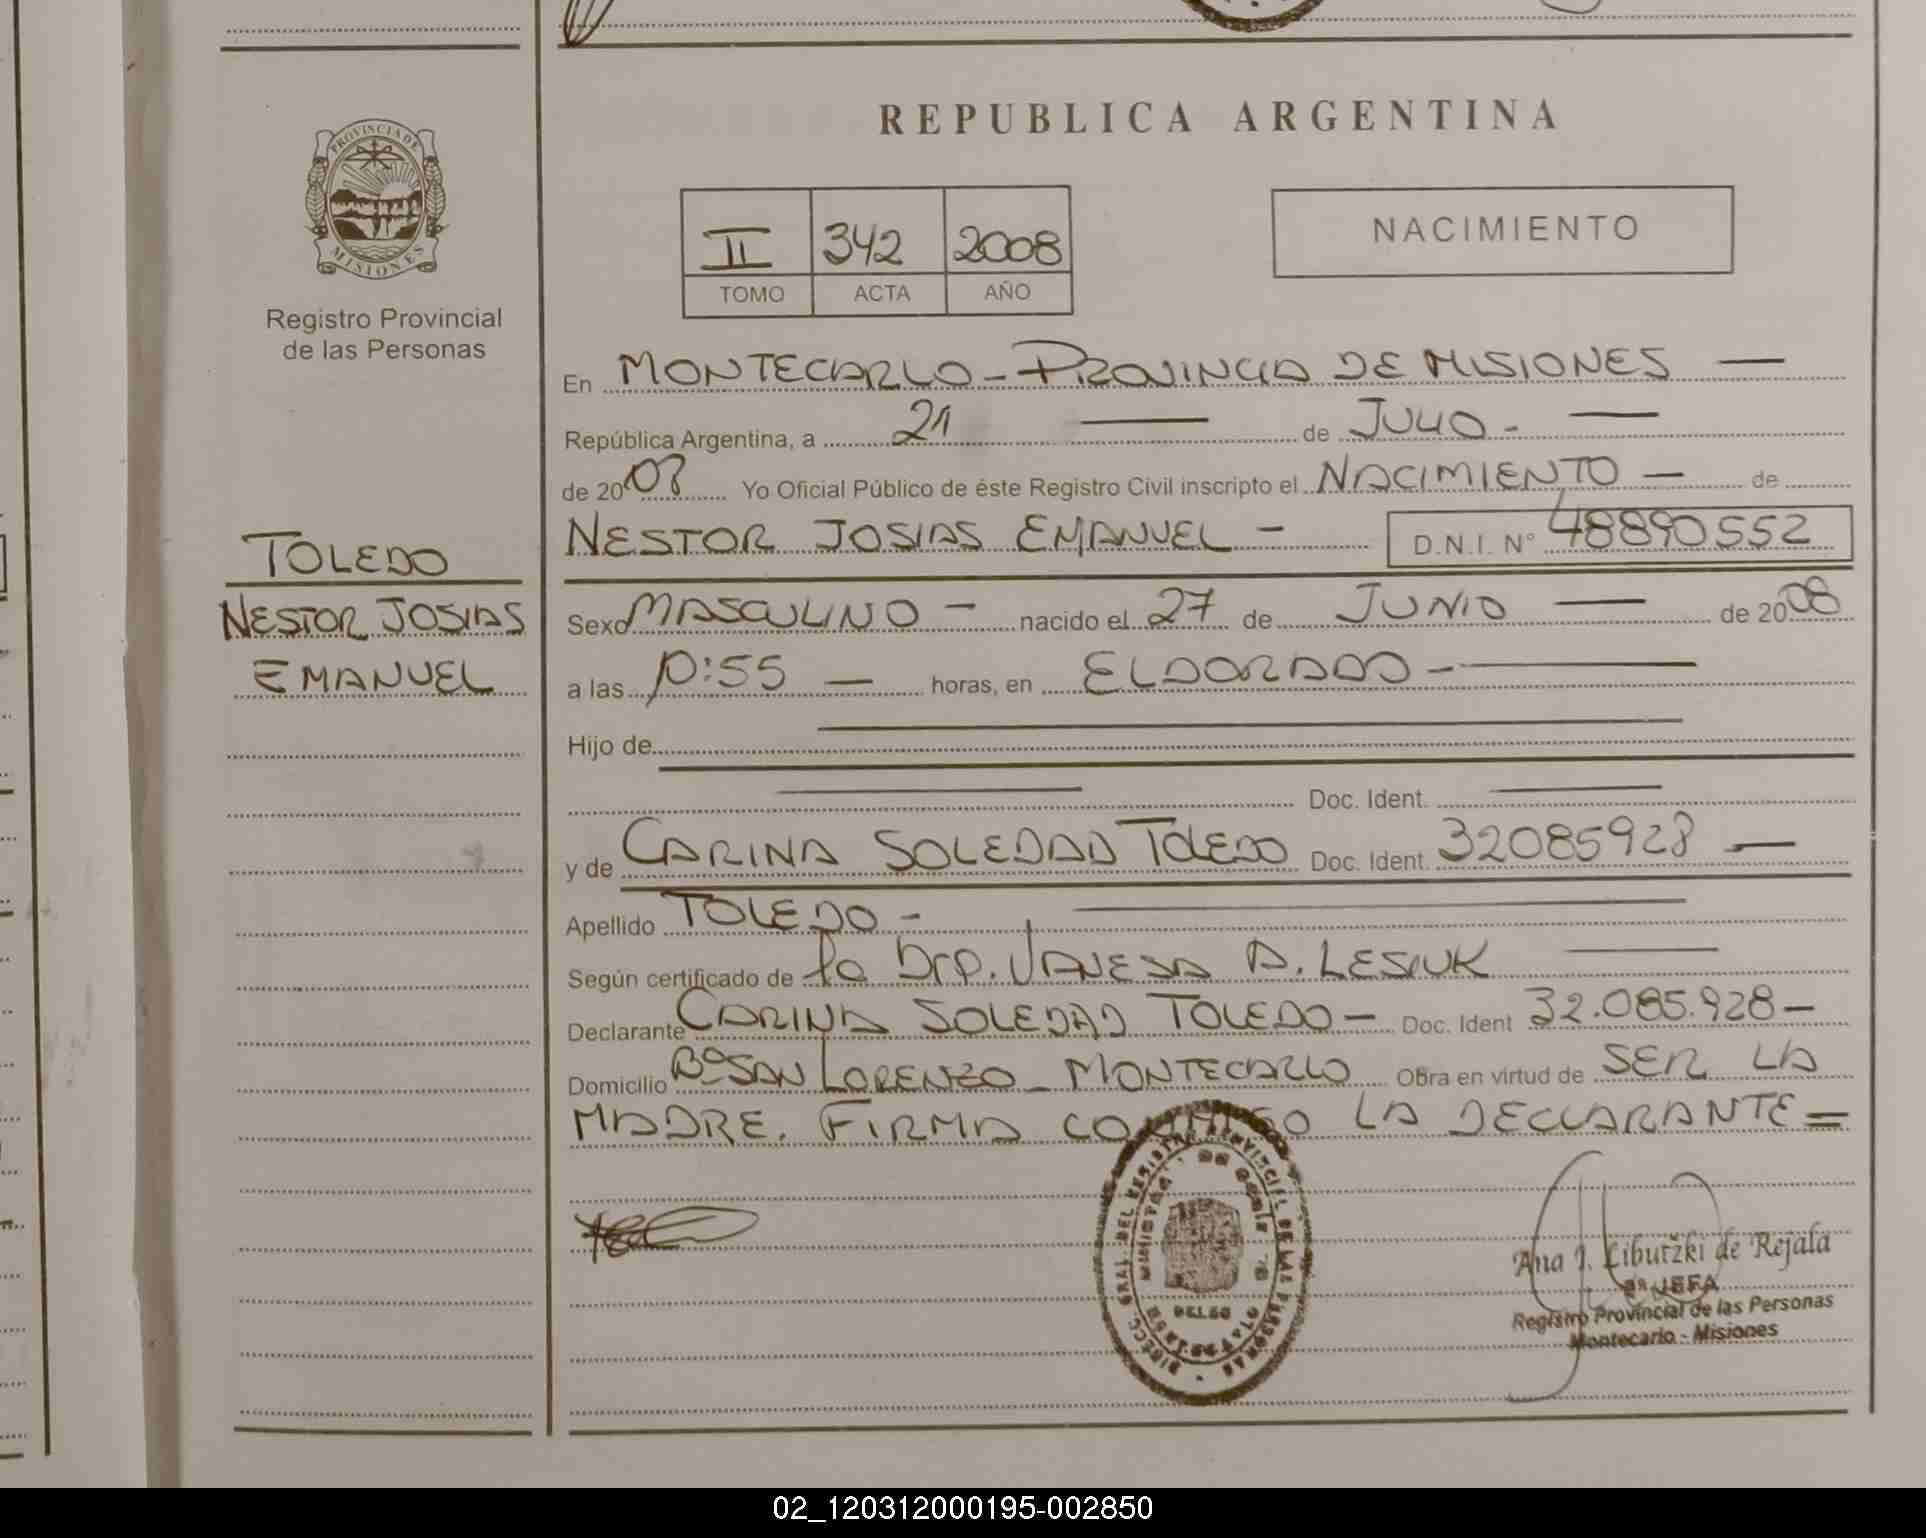 PROVINCIA DE
MISIONES
Registro Provincial
de las Personas
TOLEDO
NESTOR JOSIAS
EMANUEL
REPUBLICA ARGENTINA
II 342 2008
TOMO ACTA AÑO
NACIMIENTO
En MONTECARLO - PROVINCIA DE MISIONES —
República Argentina, a 21 — de JULIO - —
de 2008 Yo Oficial Público de éste Registro Civil inscripto el NACIMIENTO — de
NESTOR JOSIAS EMANUEL - D.N.I. N° 48890552
Sexo MASCULINO - nacido el 27 de JUNIO — de 2008
a las 10:55 — horas, en ELDORADO - —
Hijo de —
— Doc. Ident. —
y de CARINA SOLEDAD TOLEDO Doc. Ident. 32085928 —
Apellido TOLEDO - —
Según certificado de la Dra. VANESA A. LESIUK —
Declarante CARINA SOLEDAD TOLEDO - Doc. Ident 32.085.928 -
Domicilio Bº SAN LORENZO - MONTECARLO Obra en virtud de SER LA
MADRE. FIRMA CONMIGO LA DECLARANTE =
Ana J. Libutzki de Rejala
JEFA
Registro Provincial de las Personas
Montecarlo - Misiones
02_120312000195-002850